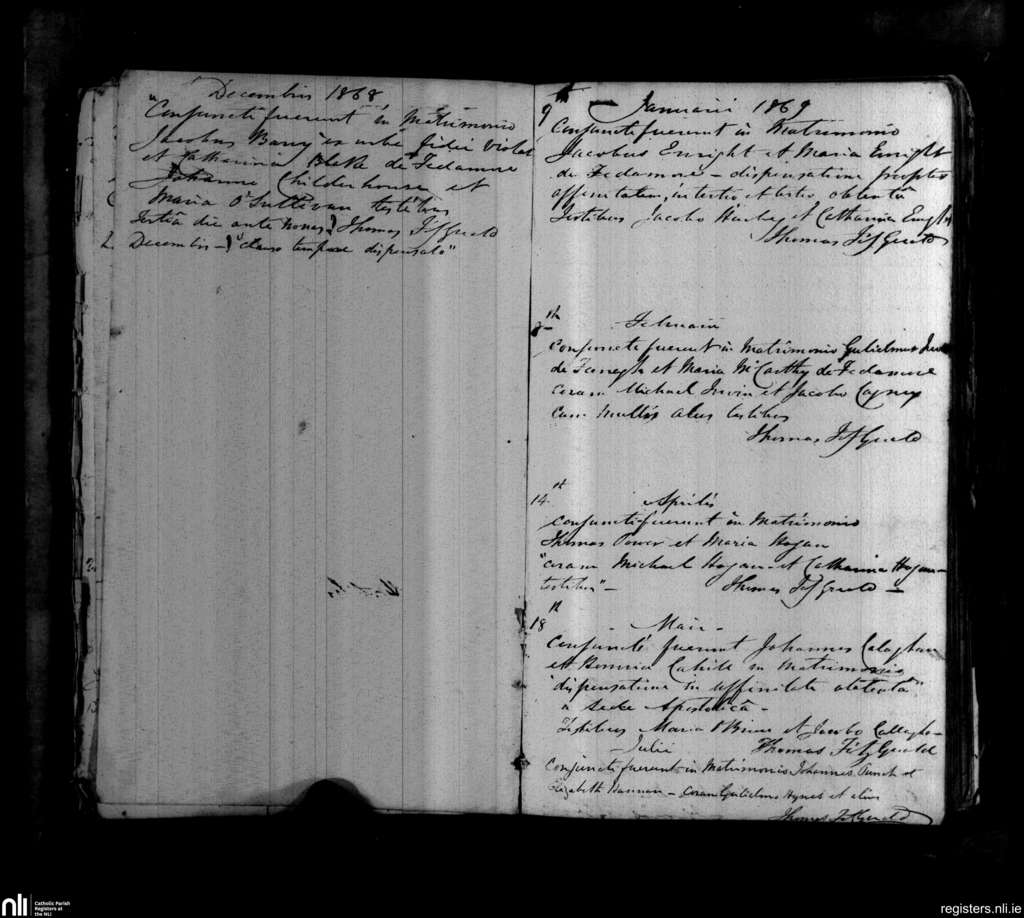 Decembris 1868
"Conjuncti fuerunt in Matrimonio
Jacobus Barry ex urbe fidei Violat
et Catharina Blake de Fedamore
Johanne Childerhouse et
Maria O'Sullivan testibus
Tertia die ante nonas Thomas FitzGerald
Decembris - "Clauso tempore dispensato"
9th Januarii 1869
Conjuncti fuerunt in Matrimonio
Jacobus Enright et Maria Enright
de Fedamore - dispensatione propter
affinitatem, in tertio et tertio obtentâ
Testibus Jacobo Hurley et Catharina
Thomas FitzGerald
th Februarii
Conjuncti fuerunt in Matrimonio Gulielmus
de et Maria McCarthy de Fedamore
coram Michael Irwin et Jacobo
cum multis aliis testibus
Thomas FitzGerald
14th Aprilis
Conjuncti fuerunt in Matrimonio
Thomas Power et Maria Hogan
"coram Michael Hogan et Catharina Hogan
testibus" - Thomas FitzGerald -
18th - Maii -
Conjuncti fuerunt Johannes Calaghan
et Cahill in Matrimonio
"dispensatione in affinitate
a sede Apostolicâ -
Testibus Maria O'Brien et Jacobo Callaghan
- Julii Thomas FitzGerald
Conjuncti fuerunt in Matrimonio Johannes Punch et
Elizabeth Hannan - coram Gulielmo Hynes et aliis
Thomas FitzGerald
nli Catholic Parish
Registers at
the NLI
registers.nli.ie